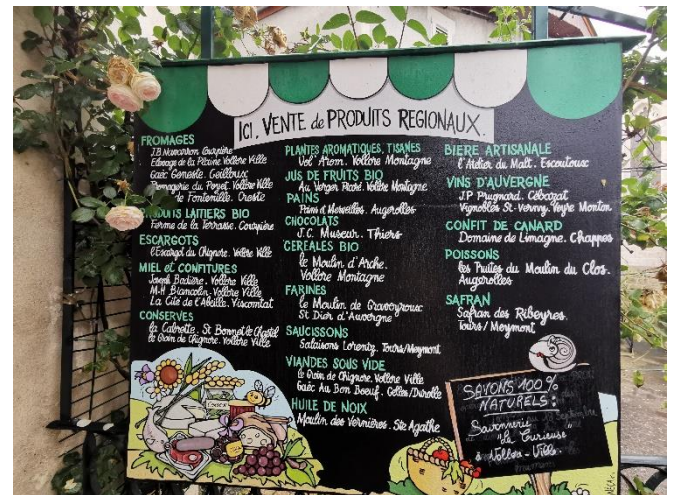 ICI. VENTE de PRODUITS REGIONAUX.
FROMAGES
J.B Numarron Courpière
Elevage de la Pleine Vollore Ville
Gaëc Geneste. Ceilloux
Fromagerie du Poyet. Vollore Ville
de Fontenille. Oreste
PRODUITS LAITIERS BIO
Ferme de la Terrasse. Courpière
ESCARGOTS
l'Escargot du Chignore. Vollore Ville
MIEL et CONFITURES
Joseph Badière. Vollore Ville
M.H Biancolin. Vollore Ville
La Cité de l'Abeille. Viscomtat
CONSERVES
la Cabrette. St Bonnet le Chastel
le Groin de Chignore. Vollore Ville
PLANTES AROMATIQUES, TISANES
Vol' Arom. Vollore Montagne
JUS DE FRUITS BIO
Au Verger Placé. Vollore Montagne
PAINS
Pains et Merveilles. Augerolles
CHOCOLATS
J.C. Museur. Thiers
CEREALES BIO
le Moulin d'Arche.
Vollore Montagne
FARINES
le Moulin de Gravoyroux
St Dier d'Auvergne
SAUCISSONS
Salaisons Lorentz. Tours/Meymont
VIANDES SOUS VIDE
le Groin de Chignore. Vollore Ville
Gaëc Au Bon Boeuf. Celles/Durolle
HUILE DE NOIX
Moulin des Vernières. Ste Agathe
BIERE ARTISANALE
l'Atelier du Malt. Escoutoux
VINS D'AUVERGNE
J.P Prugnard. Cébazat
Vignobles St-Verny. Veyre Monton
CONFIT DE CANARD
Domaine de Limagne. Chappes
POISSONS
les Truites du Moulin du Clos.
Augerolles
SAFRAN
Safran des Ribeyres.
Tours/Meymont
SAVONS 100%
NATURELS:
Savonnerie
"la Curieuse"
à Vollore-Ville